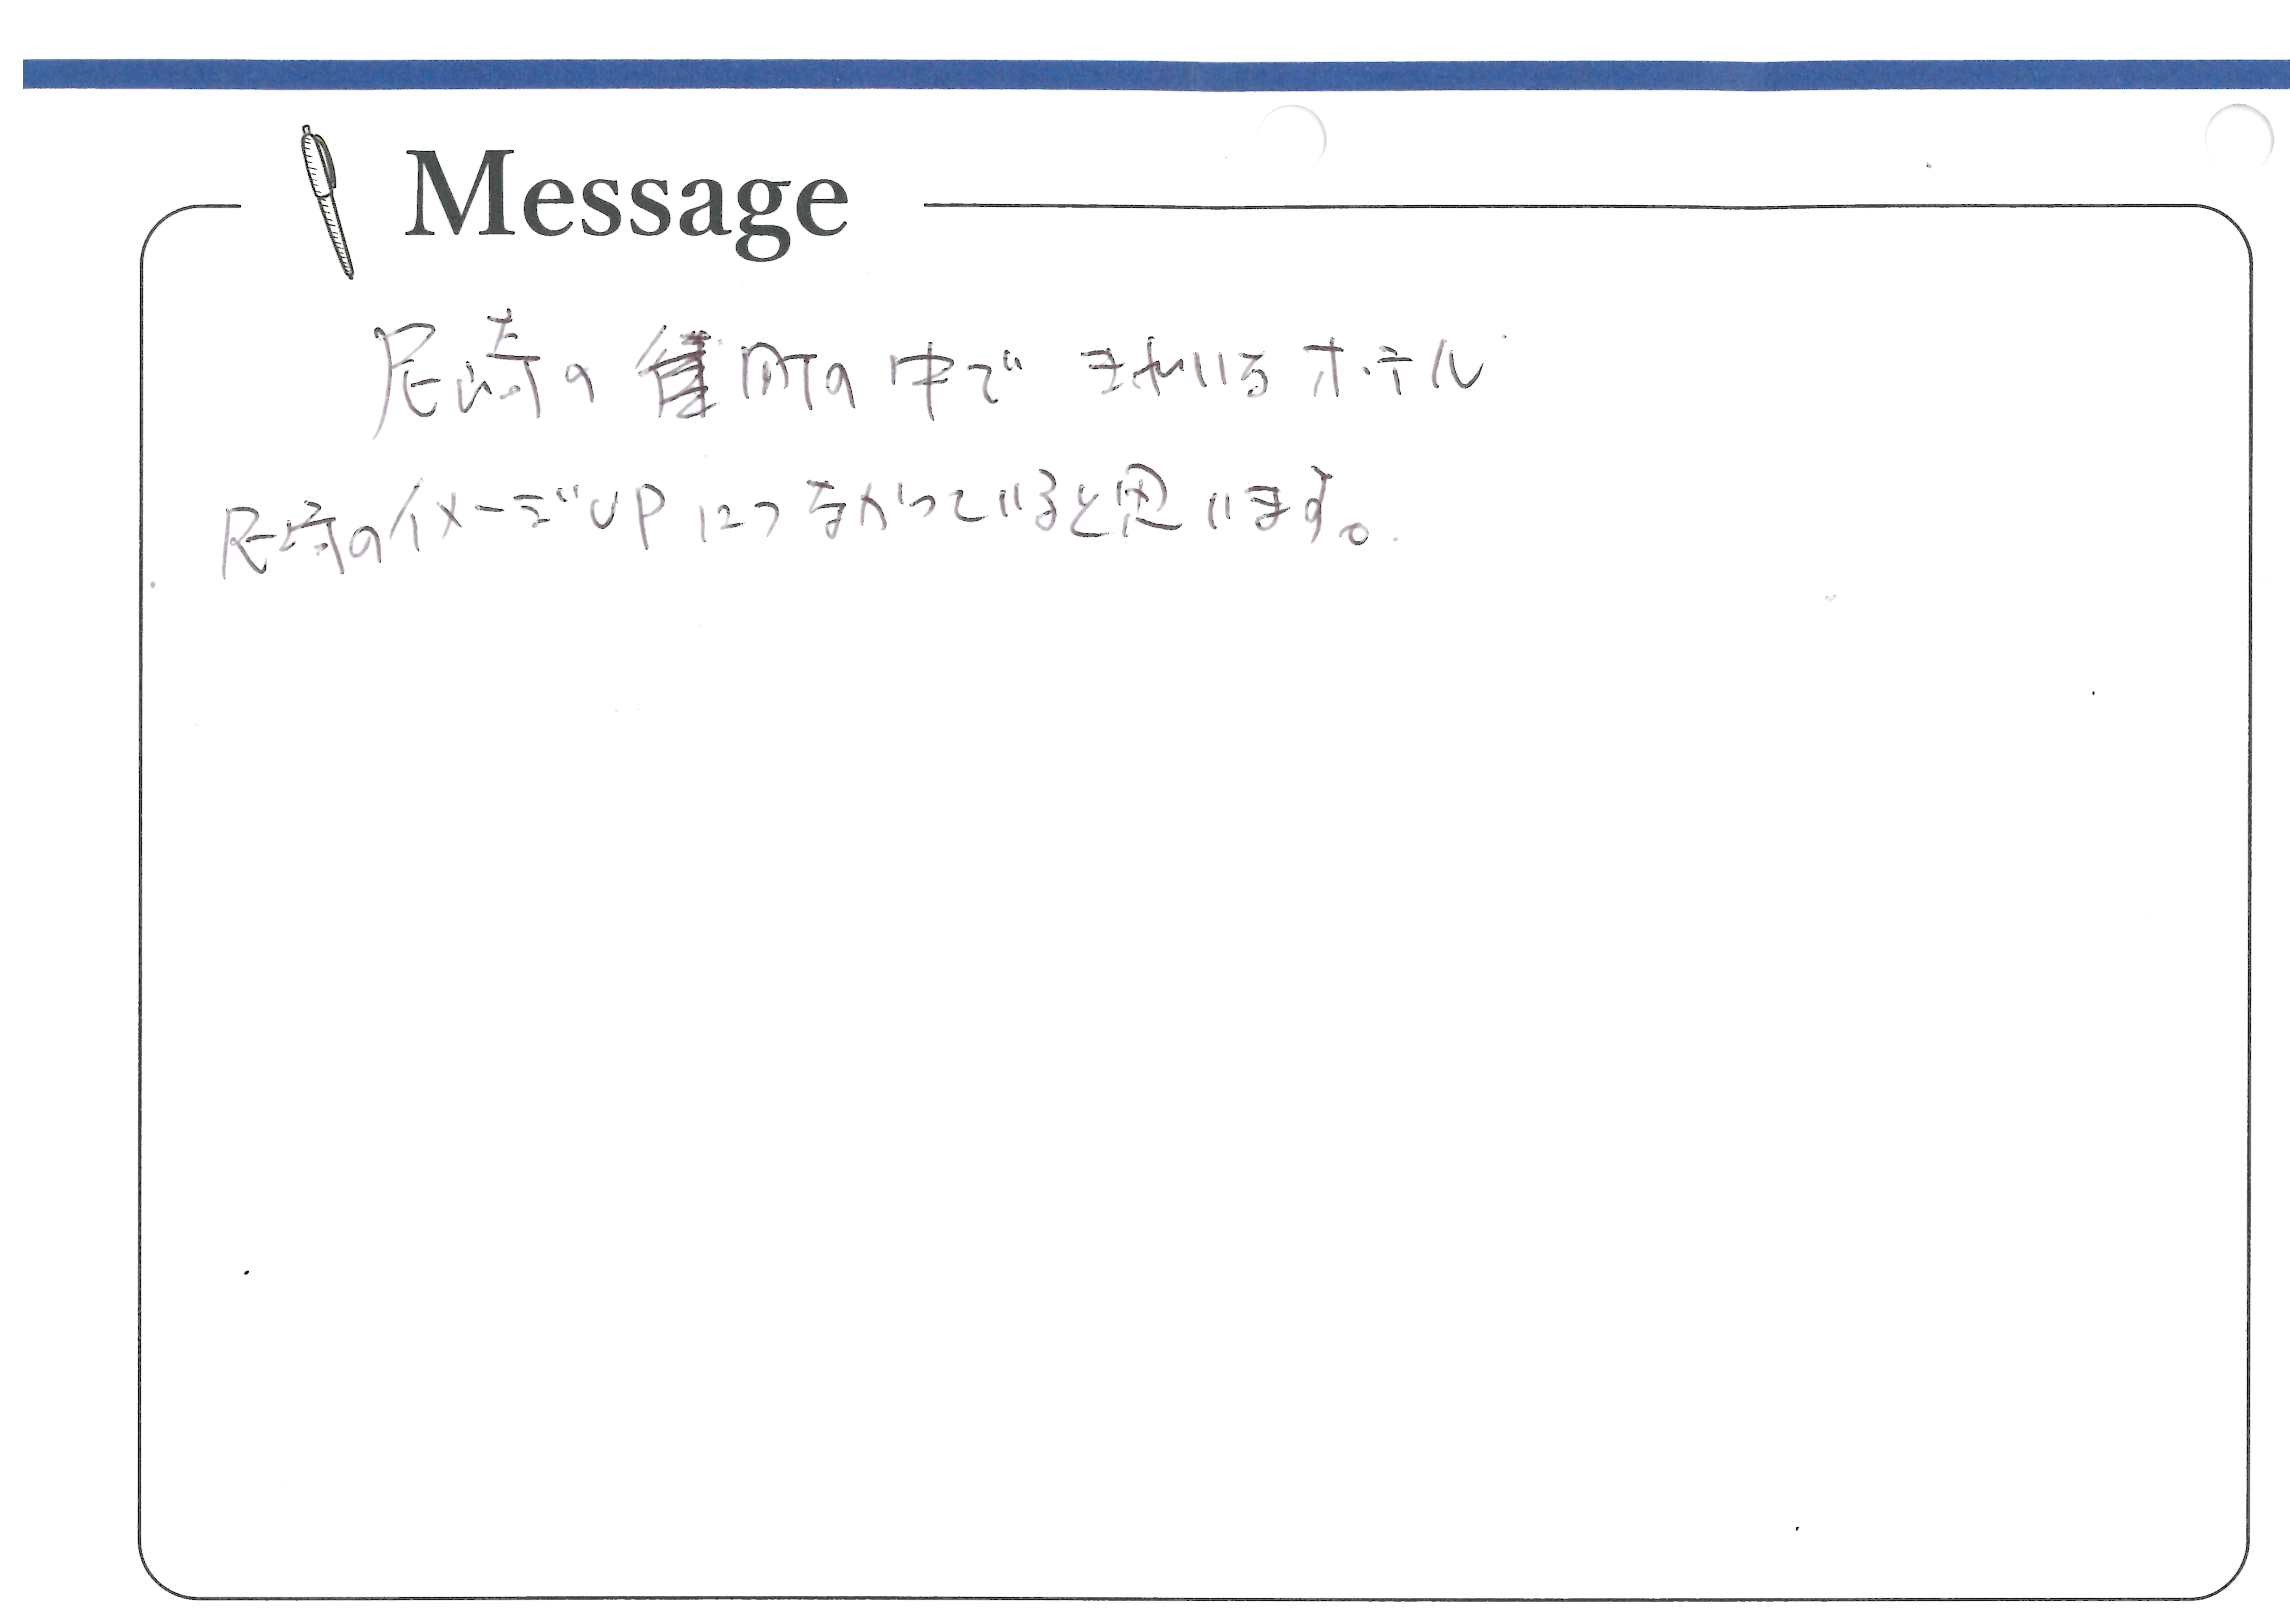 Message
尼崎の 町の中で きれいなホテル
尼崎のイメージUPにつながっていると思います。